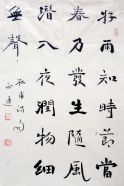 好雨知時節當
春乃發生隨風
潛入夜潤物細
無聲